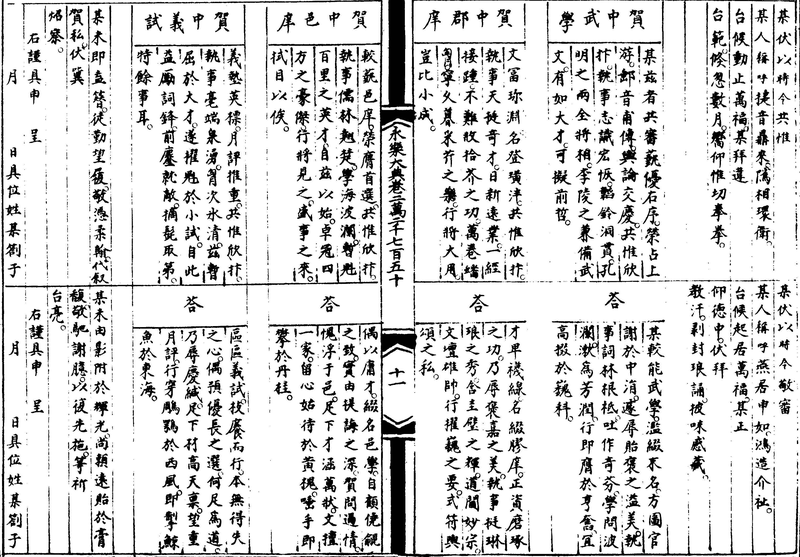 某伏以時令共惟
某人稱呼捷音鼎來隲相環衛
台候動止萬福某拜違
台範倐忽數月嚮仰惟切拳拳
賀中武學
某茲者共審藝優右序榮占上
游郵音甫傳輿論交慶共惟欣
抃執事志識宏恢韜鈐洞貫孔
明之兩全將相李陵之兼備武
文有如大才可擬前哲
賀中郡庠
文富珎淵名登璜泮共惟欣抃
執事天挺奇才日新遠業一經
接踵不難敗拾芥之功萬卷蟠
胷寧久采芹之樂行將大用
豈比小成
永樂大典卷二萬二千七百五十
十一
賀中邑庠
較藝邑庠榮膺首選共惟欣抃
執事儒林翹楚學海波瀾暫魁
百里之英才自茲以始卓冠四
方之豪傑行將見之盛事之來
拭目以俟
賀中義試
義塾英標月評推重共惟欣抃
執事毫端泉湧胷次氷清茲暫
屈於大才遂擢魁於小試自此
益勵詞鋒前鏖就敵摘髭取第
特餘事耳
某未即盍簪徒勤望履敬憑柔翰代叙
賀私伏冀
炤察
右謹具申 呈
月 日具位姓某劄子
某伏以時令敬審
某人稱呼燕居申如鴻造介祉
台候起居萬福某正
仰德中伏拜
教汗剥封琅誦披味感藏
答
某較能武學濫綴末名方圖官
謝於中涓遽辱胎褒之溢美執
事詞林根柢吐作奇芬學問波
瀾漱爲芳潤行即膺於亨奮宜
高掇於巍科
答
才早襪線名綴膠庠正資磨琢
之功乃辱褒嘉之美執事挺琳
琅之秀含圭璧之輝道閫妙宗
文壇雄帥行擢巍之要式符輿
頌之私
答
偶以庸才綴名邑學自顧僥覦
之致實由提誨之深質問過情
愧浮于色足下才涵萬狀文擅
一家留心姑待於黄槐唾手即
攀於丹桂
答
區區義試投而行本無得失
之心偶預優長之選何足爲道
乃辱慶緘足下材高天禀望重
月評行穿鵰鶚於西風即掣鯨
魚於東海
某未由影附於輝光尚賴遠貽於膏
馥敬馳謝牘以復光施莘祈
台亮
右謹具申 呈
月 日具位姓某劄子